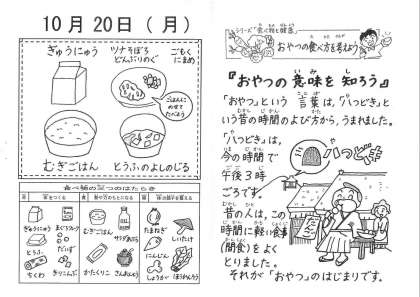 10月20日(月)
ぎゅうにゅう
ツナそぼろ
どんぶりのぐ
ごもく
にまめ
ごはんに
のせて
たべよう
むぎごはん
とうふのよしのじる
食べ物の三つのはたらき
赤
体をつくる
黄
熱や力のもとになる
緑
体の調子を整える
ぎゅうにゅう
まぐろフレーク
とうふ
だいず
ちくわ
きりこんぶ
むぎごはん
サラダあぶら
かたくりこ
さんおんとう
たまねぎ
しいたけ
にんじん
しょうが
ほうれんそう
シリーズ「食べ物と健康」
おやつの食べ方を考えよう
『おやつの意味を知ろう』
「おやつ」という言葉は、「八つどき」と
いう昔の時間のよび方から、うまれました。
「八つどき」は、
今の時間で
午後3時
ごろです。
八つどき
昔の人は、この
時間に軽い食事
(間食)をよく
とりました。
それが「おやつ」のはじまりです。